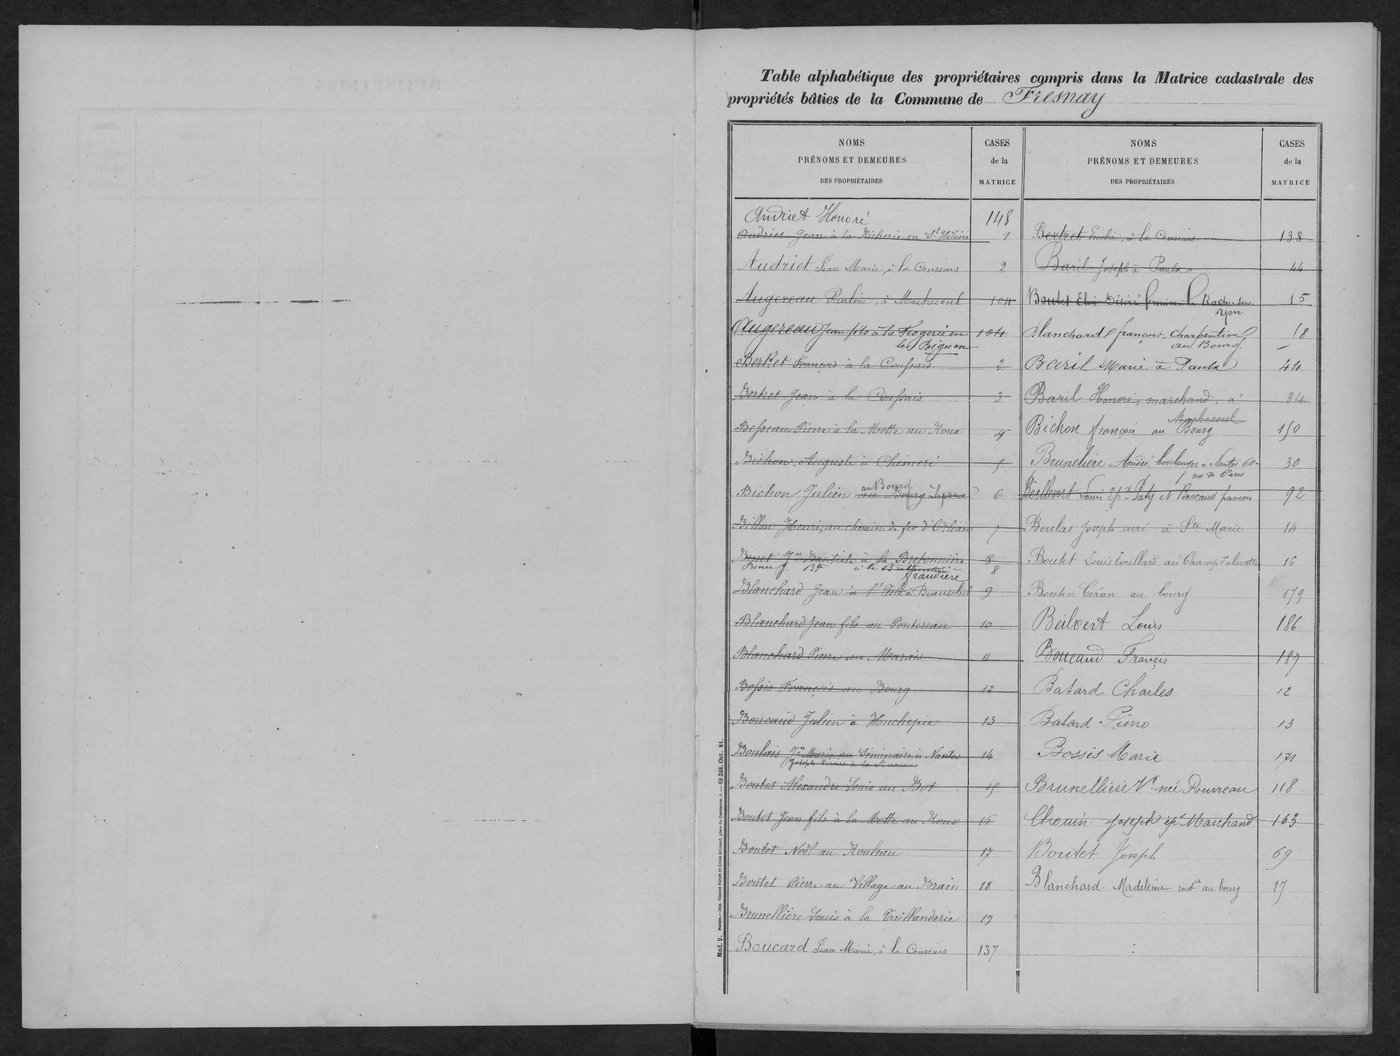 Table alphabétique des propriétaires compris dans la Matrice cadastrale des
propriétés bâties de la Commune de Fresnay
NOMS
PRÉNOMS ET DEMEURES
DES PROPRIÉTAIRES
CASES
de la
MATRICE
Andriet Honoré 148
Andriet Jean à la en St Hilaire 1
Audriet Jean Marie, à la Coussais 2
Augereau Pauline, à Machecoul 104
Augereau Jean fils à la en 104
le Bignon
Bertret François à la Coussais 2
Bertret Jean à la Coussais 3
Besseau Pierre à la Motte au Roux 4
Bichon Auguste à Chéméré 5
au Bourg
Bichon Julien au Bourg 6
Billon Henri, au chemin de fer d'Orléans 7
Jn Baptiste à la 8
8
Blanchard Jean à Beausoleil 9
Blanchard Jean fils au Pontereau 10
Blanchard Pierre au Marais 11
Bossis François au Bourg 12
Boucaud Julien à Huchepie 13
Boulais Jn Marie au Séminaire à Nantes 14
Boutet Alexandre Louis au Bot 15
Boutet Jean fils à la Motte au Roux 16
Boutet Noël au Rouleau 17
Boutet Pierre au Village au Brain 18
Brunellière Louis à la 19
Boucard Jean Marie, à la Coussais 137
NOMS
PRÉNOMS ET DEMEURES
DES PROPRIÉTAIRES
CASES
de la
MATRICE
Bertret Emilie, à la Coussais 138
Baril Joseph à Paulx 44
Boutet Désiré fermier la Roche sur 15
yon
Blanchard françois, Charpentier, 18
au Bourg
Baril Marie à Paulx 44
Baril Honoré, marchand, à 34
Machecoul
Bichon françois au Bourg 150
Brunelière André boulanger à Nantes 60 30
rue de Paris
Boilloert Louis Ep. Paty et Boucaud francois 92
Boulas Joseph curé à Ste Marie 14
Boutet Louis au Champ d'alouette 15
Boutin Céran au bourg 179
Bailvert Louis 186
Boucaud François 187
Batard Charles 12
Batard Pierre 13
Bossis Marie 171
Brunellière Ve née Pouvreau 118
Chouin Joseph ép. Marchand 163
Boutet Joseph 69
Blanchard Madeleine au bourg 17
Mod. 9.